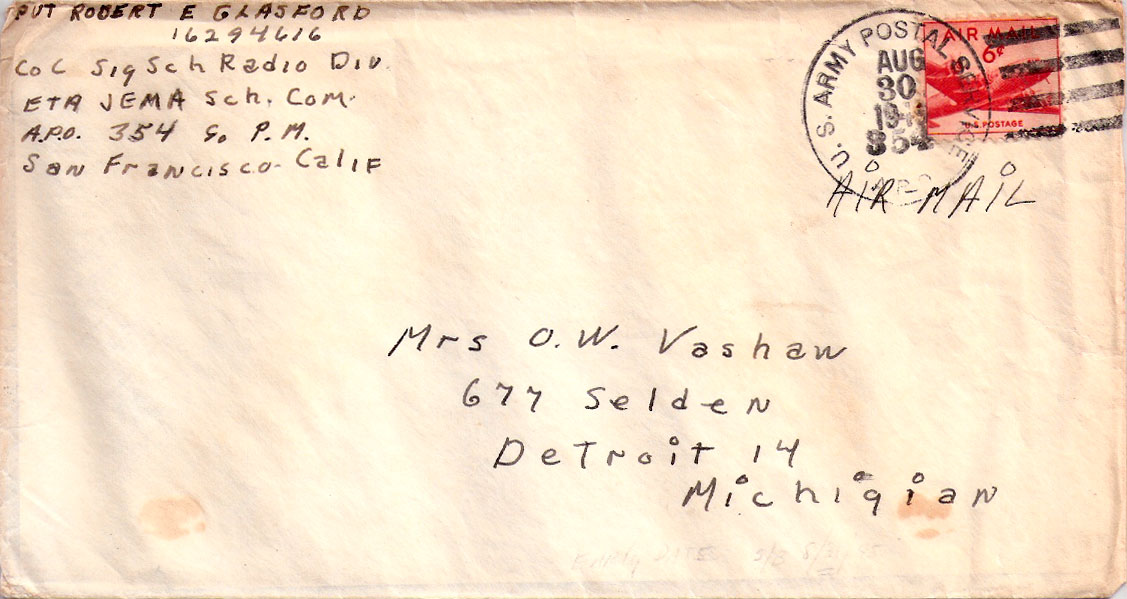 PVT ROBERT E GLASFORD
16294616
Co C Sig Sch Radio Div.
ETA JEMA Sch. Com.
A.P.O. 354 % P.M.
San Francisco-Calif
U. S. ARMY POSTAL SERVICE
AUG
30
354
A.P.O.
AIR MAIL
6¢
U.S. POSTAGE
AIR MAIL
Mrs O.W. Vashaw
677 Selden
Detroit 14
Michigian